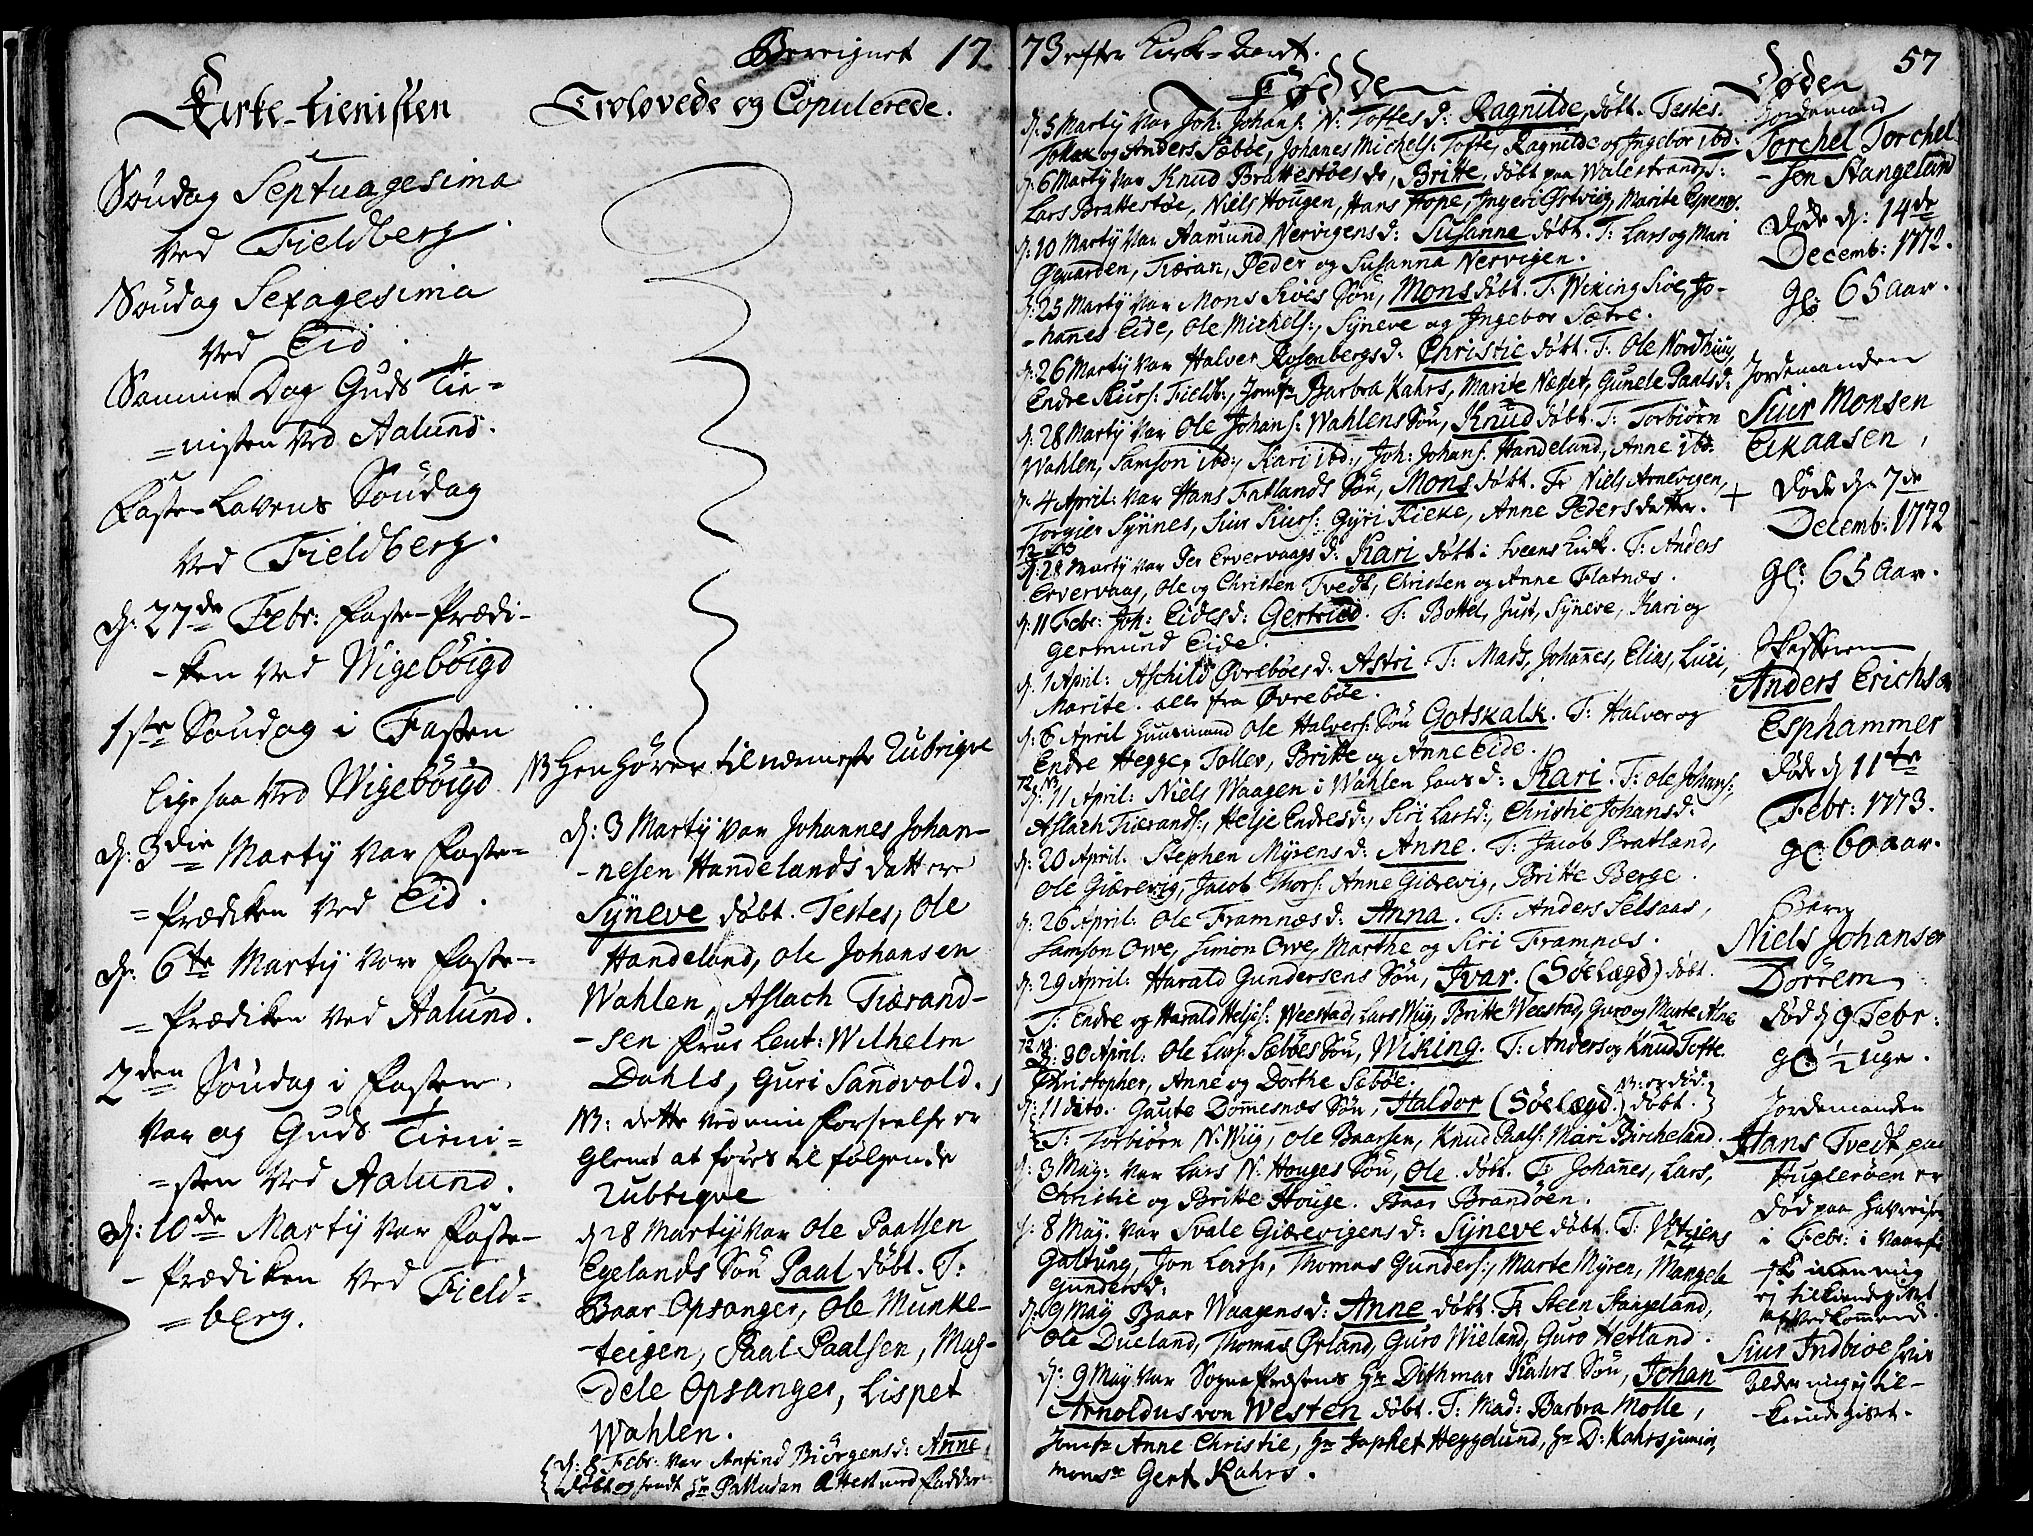 Beregnet 17
Kirke-tienisten
Søndag Septuagesima
ved Fieldberg.
Søndag Sexagesima
ved Eid.
Samme Dag Guds Tie=
=nisten ved Aalund.
Faste-Lavens Søndag
ved Fieldberg.
d: 27de Febr: Faste-Prædi-
-ken ved Wigebøigd
1ste Søndag i Fasten
lige saa ved Wigebøigd
d: 3die Martÿ var Faste=
=Prædiken ved Eid.
d: 6te Martÿ var Faste=
=Prædiken ved Aalund.
2den Søndag i Fasten
var og Guds Tieni=
=sten ved Aalund.
d: 10de Martÿ var Faste-
-Prædiken ved Field=
=berg.
Troloved​e og Copulerede.
NB henhører til næmeste Rubriqve
d: 3 Martÿ var Johannes Johan-
-nesen Handelands datter
Sÿneve døbt. Testes, Ole
Handeland, Ole Johansen
Wahlen, Aslach Tiærand-
-sen Frue Leut: Wilhelm
Dahls, Guri Sandvold.
NB: dette ved min forseelse er
Glemt at føres til følgende
Rubriqve
d 28 Martÿ var Ole Paalsen
Egelands Søn Paal døbt. T:
Baar Opsanger, Ole Munke-
-teigen, Paal Paalsen, Mag-
Dele Opsanger, Lispet
Wahlen.
d: 8 Febr: var Anfind Biørgens d: Anne
Døbt og sendt Hr Palludan Attest med Faddere
73 efter Kirk-
57
Fødde
d: 5 Martÿ var Joh: Johans: N: Toftes d: Ragnilde, døbt. Testes.
og Anders Sæbøe, Johanes Michels: Tofte, Ragnilde og Ingebor ibd:
d: 6 Martÿ var Knud Brattestøes d:, Britte, døbt paa Walestrand T:
Lars Brattestøe, Niels Hougen, Hans Hope, Ingeri Østviig, Marite Espenes.
d: 10 Martÿ var Aamund Nervigens d: Susanne døbt. T: Lars og Mari
Øegaarden, Tiæran, Peder og Susanna Nervigen.
d: 25 Martÿ var Mons Siøes Søn, Mons døbt. T: Wiking Siøe, Jo-
-hannes Eide, Ole Michels:, Sÿneve og Ingebor Sætre.
d: 26 Martÿ var Halver Rosenbergs d: Christie døbt. T: Ole Nordhuug
Endre Siurs: Fieldb:, Jomfr Barbra Kahrs, Marite Næsset, Gunele Paals d:
d: 28 Martÿ var Ole Johans: Wahlens Søn, Knud døbt. T: Torbiørn
Wahlen, Samson ibd:, Kari ibd:, Joh: Johans: Handeland, Anne ibd.
d: 4 April: var Hans Fatlands Søn, Mons døbt. T: Niels Arnevigen, +
Torgier Sÿnnes, Siur Siurs: Gÿri Kieke, Anne Pedersdatter.
d: 28 Martÿ var Per Ervervaags d: Kari døbt i Sveens Kirk. T: Anders
Ervervaag, Ole og Christen Tvedt, Christen og Anne Flatnæs.
d: 11 Febr: Joh: Eides d: Gertried. T: Bottel, Just, Sÿneve, Kari og
Germund Eide.
d. 1 April: Aschild Øvrebøes d: Astri. T: Mads, Johannes, Elias, Luci,
Marite. alle fra Øvrebøe.
d: 6 April Huusmand Ole Halvers: Søn Gotskalk. T: Halver og
Endre Hegge, Tollev, Britte og Anne Eide.
d: 11 April: Niels Waagen i Wahlen hans d: Kari. T: Ole Johans:,
Aslach Tiærands:, Helje Endres d:, Siri Lars d:, Christie Johans d:
d: 20 April: Stephen Mÿrens d: Anne. T: Jacob Bratland,
Ole Giærevig, Jacob Thors: Anne Giærevig, Britte Berge.
d: 26 April: Ole Framnæs d: Anna. T: Anders Selsaas,
Samson Owe, Simon Owe, Marthe og Siri Framnæs.
d: 29 April: Harald Gundersens Søn, Ivar. (Søelægd) døbt.
T: Endre og Harald Heljes: Weestad, Lars Wiig, Britte Weestad, Guro og Marte
d: 30 April: Ole Lars: Sæbøes Søn, Wiking. T: Anders og Knud Tofte
Christopher, Anne og Dorthe Sæbøe.
d: 11 dito. Gaute Dommesnæs Søn, Haldor (Søelægd.) døbt. NB: er død:
T: Torbiørn N: Wiig, Ole Baarsen, Knud Paals: Mari Bircheland.
d: 3 Maÿ: var Lars N: Houges Søn, Ole døbt. T: Johannes, Lars,
Christie og Britte Houge. Baar Brandøen.
d: 8 Maÿ. var Svale Giærevigens d: Sÿneve døbt. T:
Galtung, Jon Lars:, Thomas Gunders:, Marte Mÿren, Mangele
Gunders d:
d: 9 Maÿ Baar Waagens d: Anne døbt. T: Steen Stangeland,
Ole Dueland, Thomas Ørland, Guro Wieland, Guro Hetland.
d: 9 Maÿ var Sogne Præstens Hr Dithmar Kahrs Søn, Johan
Arnoldus von Westen døbt. T: Mad: Barbra Molle,
Jomfr Anne Christie, Hr Japhet Heggelund, Hr D: Kahrs junior,
Monsr Gert Kahrs.
Døde
Jordemand
Torchel Torchel
-sen Stangeland
døde d: 14de
Decemb: 1772.
gl: 65 aar.
Jordemanden
Siur Monsen
Eikaasen,
døde d. 7de
Decemb: 1772
gl: 65 aar.
Anders Erichsen
Esphammer
døde d 11te
Febr: 1773.
gl: 60 aar.
Barn
Niels Johansen
Dørrem
død d 9 Febr:
gl ½ uge.
Jordemanden
Hans Tvedt paa
Huglerøen er
død paa
i Febr: i Vaar
men mig
ej tilkiendegivet
af vedkommende.
Siur Indbioe hvis
alder mig ej til-
-kiendegivet.